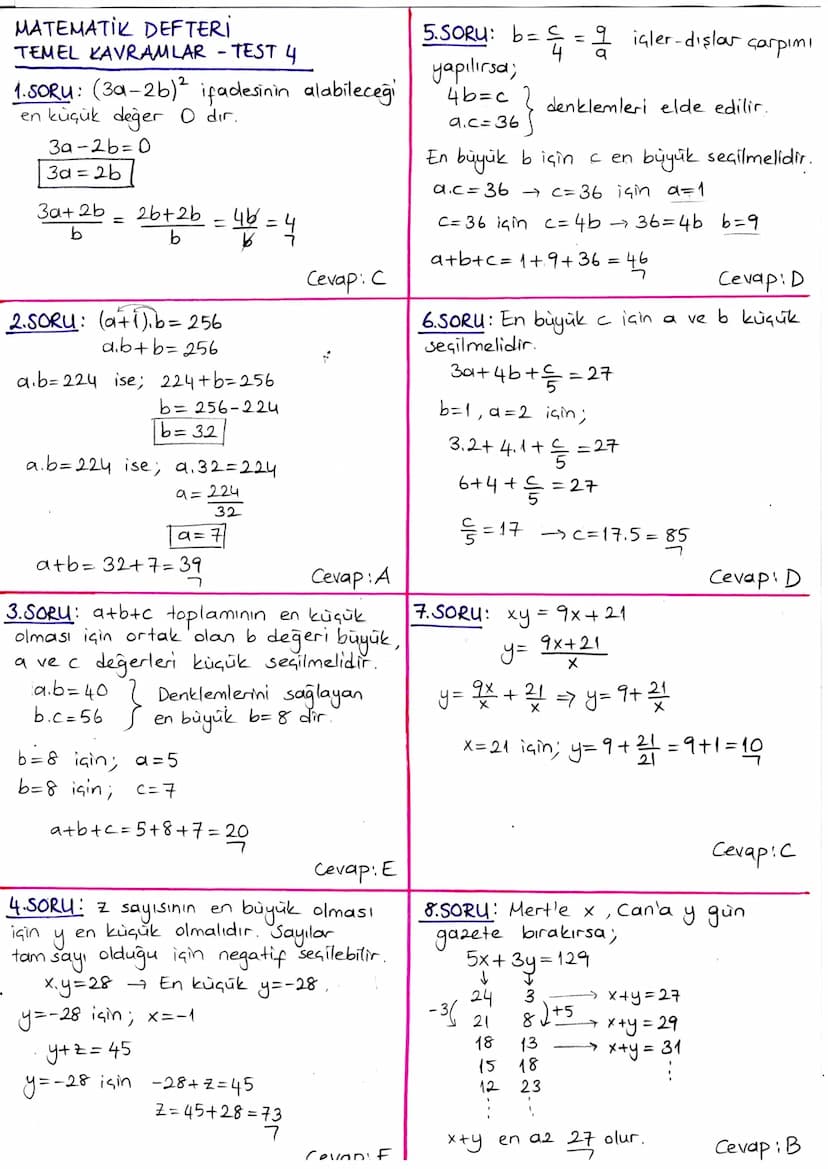 MATEMATİK DEFTERİ
TEMEL KAVRAMLAR - TEST 4
1.SORU: (3a-2b)² ifadesinin alabileceği
en küçük değer 0 dır.
3a-2b=0
3a=2b
3a+2b/b = 2b+2b/b = 4b/b = 4
Cevap: C
2.SORU: (a+1).b=256
a.b+b=256
a.b=224 ise; 224+b=256
b=256-224
b=32
a.b=224 ise; a.32=224
a=224/32
a=7
a+b=32+7=39
Cevap: A
3.SORU: a+b+c toplamının en küçük
olması için ortak olan b değeri büyük,
a ve c değerleri küçük seçilmelidir.
a.b=40 } Denklemlerini sağlayan
b.c=56 } en büyük b=8 dir.
b=8 için; a=5
b=8 için; c=7
a+b+c=5+8+7=20
Cevap: E
4.SORU: z sayısının en büyük olması
için y en küçük olmalıdır. Sayılar
tam sayı olduğu için negatif seçilebilir.
x.y=28 → En küçük y=-28.
y=-28 için; x=-1
y+z=45
y=-28 için -28+z=45
z=45+28=73
5.SORU: b=c/4=9/a içler-dışlar çarpımı
yapılırsa;
4b=c }
a.c=36 } denklemleri elde edilir.
En büyük b için c en büyük seçilmelidir.
a.c=36 → c=36 için a=1
c=36 için c=4b → 36=4b b=9
a+b+c=1+9+36=46
Cevap: D
6.SORU: En büyük c için a ve b küçük
seçilmelidir.
3a+4b+c/5=27
b=1, a=2 için;
3.2+4.1+c/5=27
6+4+c/5=27
c/5=17 → c=17.5=85
Cevap: D
7.SORU: xy=9x+21
y=9x+21/x
y=9x/x+21/x ⇒ y=9+21/x
x=21 için; y=9+21/21=9+1=10
Cevap: C
8.SORU: Mert'e x, Can'a y gün
gazete bırakırsa;
5x+3y=129
↓ ↓
24 3 → x+y=27
-3( 21 8 )+5 → x+y=29
18 13 → x+y=31
15 18 ⋮
12 23
⋮ ⋮
x+y en az 27 olur.
Cevap: B